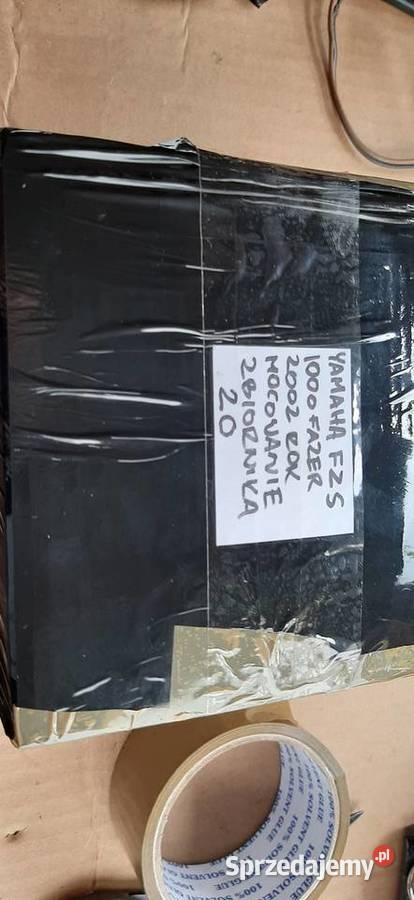 YAMAHA FZS
1000 FAZER
2002 ROK
MOCOWANIE
ZBIORNIKA
20
100% SOLVENT GLUE
100% SOLVENT GLUE
Sprzedajemy.pl